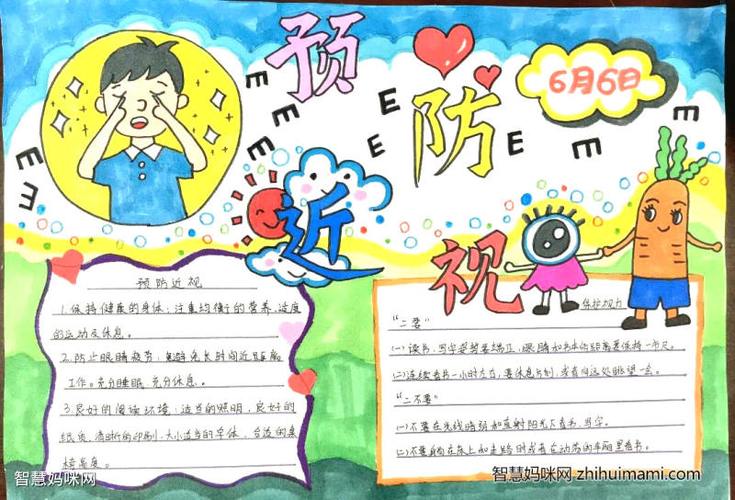 预防近视
6月6日
E E E E E E E E E E E
预防近视
1.保持健康的身体:注重均衡的营养、适度
的运动及休息。
2.防止眼睛疲劳:
工作。充分睡眠,充分休息。
3.良好的阅读环境:适当的照明,良好的
纸质,清晰的印刷,大小适当的字体,合适的桌
椅高度。
保护视力
“二要”
(一)读书、写字姿势要端正,眼睛和书本的距离要保持一市尺。
(二)连续看书一小时左右,要休息片刻,或者向远处眺望一会。
“二不要”
(一)不要在光线暗弱和直射阳光下看书、写字。
(二)不要躺在床上和走路时或者在动荡的车厢里看书。
智慧妈咪网
智慧妈咪网 zhihuimami.com